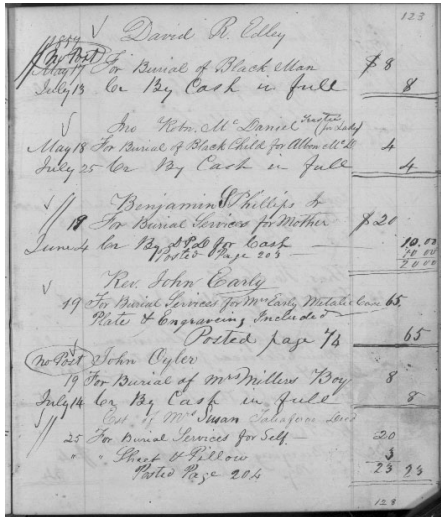 123
1857 David R. Edley
No Post
May 17 For Burial of Black Man $8
July 13 Cr By Cash in full 8
Jno Robn. McDaniel Trustee (for Lady)
May 18 For Burial of Black Child for McD 4
July 25 Cr By Cash in full 4
Benjamin S Phillips Jr
19 For Burial Services for Mother $20
June 4 Cr By for Cash 10.00
Posted Page 203 10 00
20 00
Rev. John Early
19 For Burial Services for Mrs Early Metalic Case 65
Plate & Engraving Included
Posted page 74 65
No Post John Cyler
19 For Burial of Mrs Millers Boy 8
July 14 Cr By Cash in full 8
Est of Mrs Susan Taliaferro Decd
25 For Burial Services for Self 20
" Sheet & Pillow 3
Posted Page 204 23 23
123